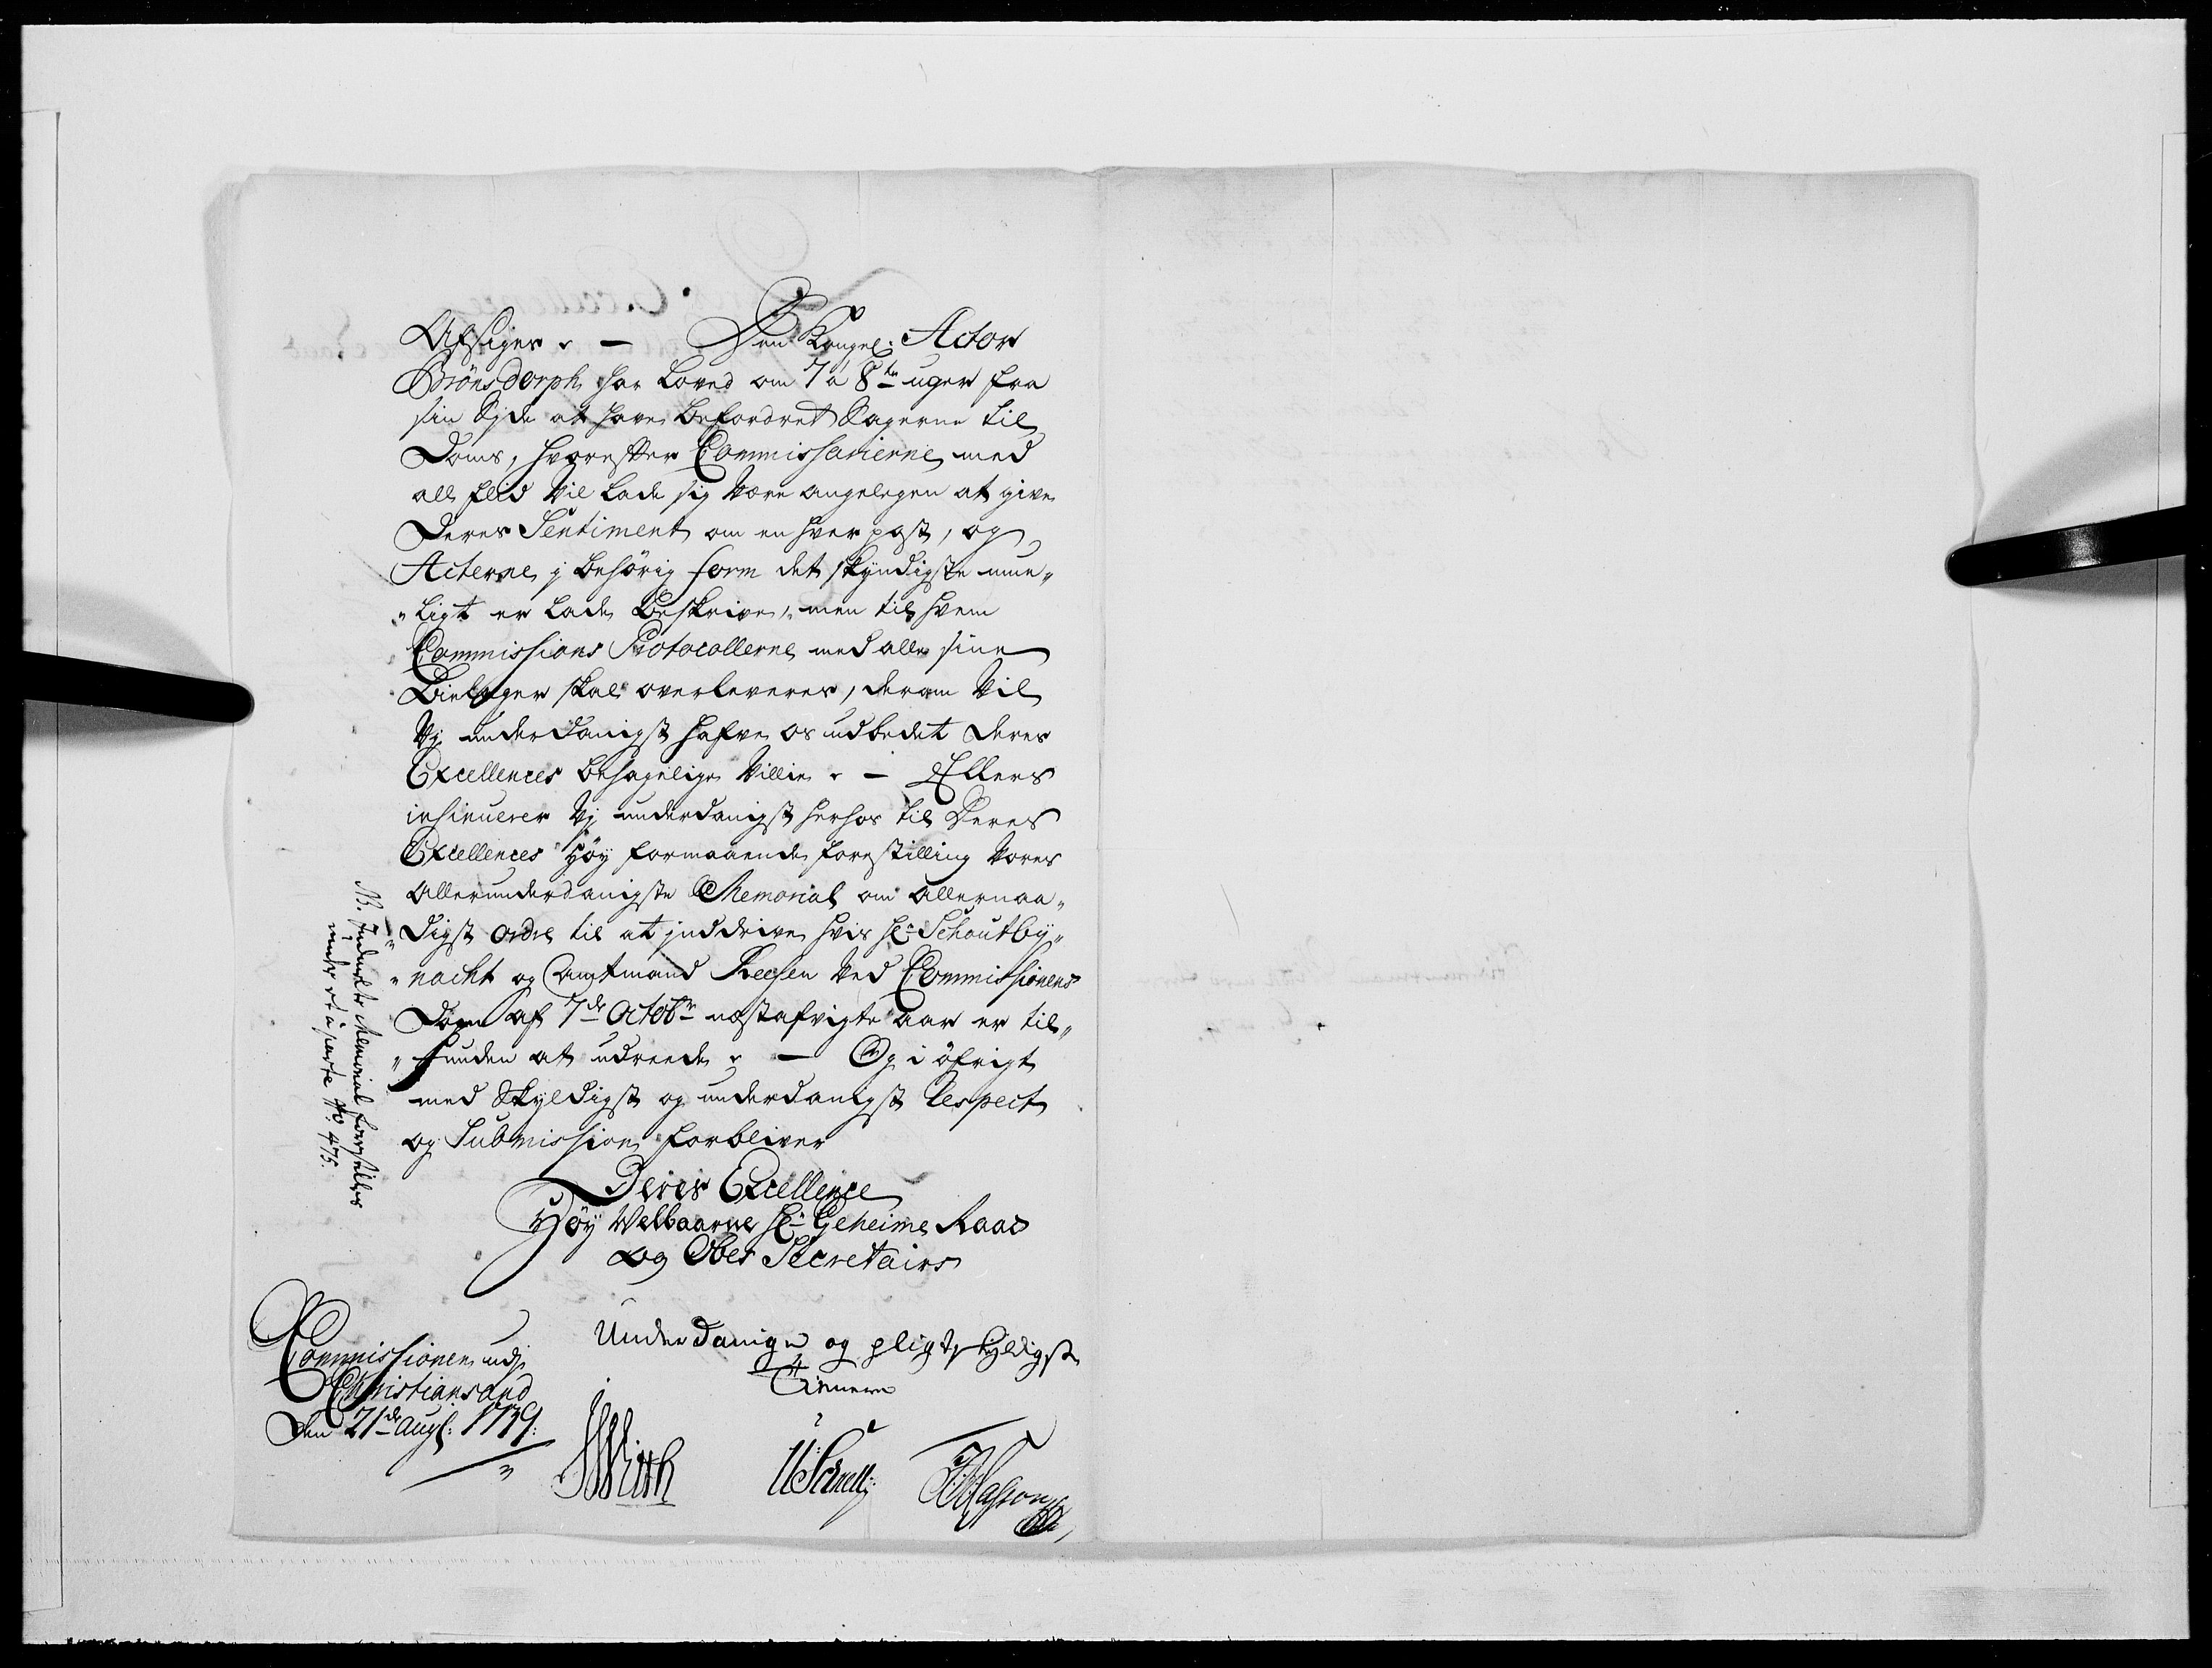 Afsiger. — Den Kongel: Actor
Brönsdorph har loved om 7 à 8te uger fra
sin Sjde at have befordret Sagerne til
Doms, hvorefter Commissarierne med
all flid vil lade sig være angelegen at give
Deres Sentiment om en hver post, og
Acterne j behörig form det skyndigste mue„
„ligt er lade beskrive, men til hvem
Commissions Protocollerne med alle sine
Bielager skal overleveres, derom vil
Vj underdanigst hafve os udbedet Deres
Excellences behagelige Villie. — Ellers
insinuerer Vj underdanigst herhos til Deres
Excellences Höy formaaende forestilling vores
Allerunderdanigste Memorial om allernaa„
„digst ordre til at jnddrive hvis Hr Schoutby„
„nacht og Amtmand Reesen ved Commissionens
Dom af 7de Octobr næstafvigte Aar er til„
„funden at udreede. — Og i öfrigt
med Skyldigst og underdanigst Respect
og Submission forbliver
Deres Excellence
Höy Velbaarne Hr Geheime Raad
og Ober Secretairs
Underdanige og pligtskyldigste
Tienere
Commissionen udj
Christiansand
Den 21de Augs: 1739:
NB. Indmelte Memorial forestilles
under et à parte No. 475.